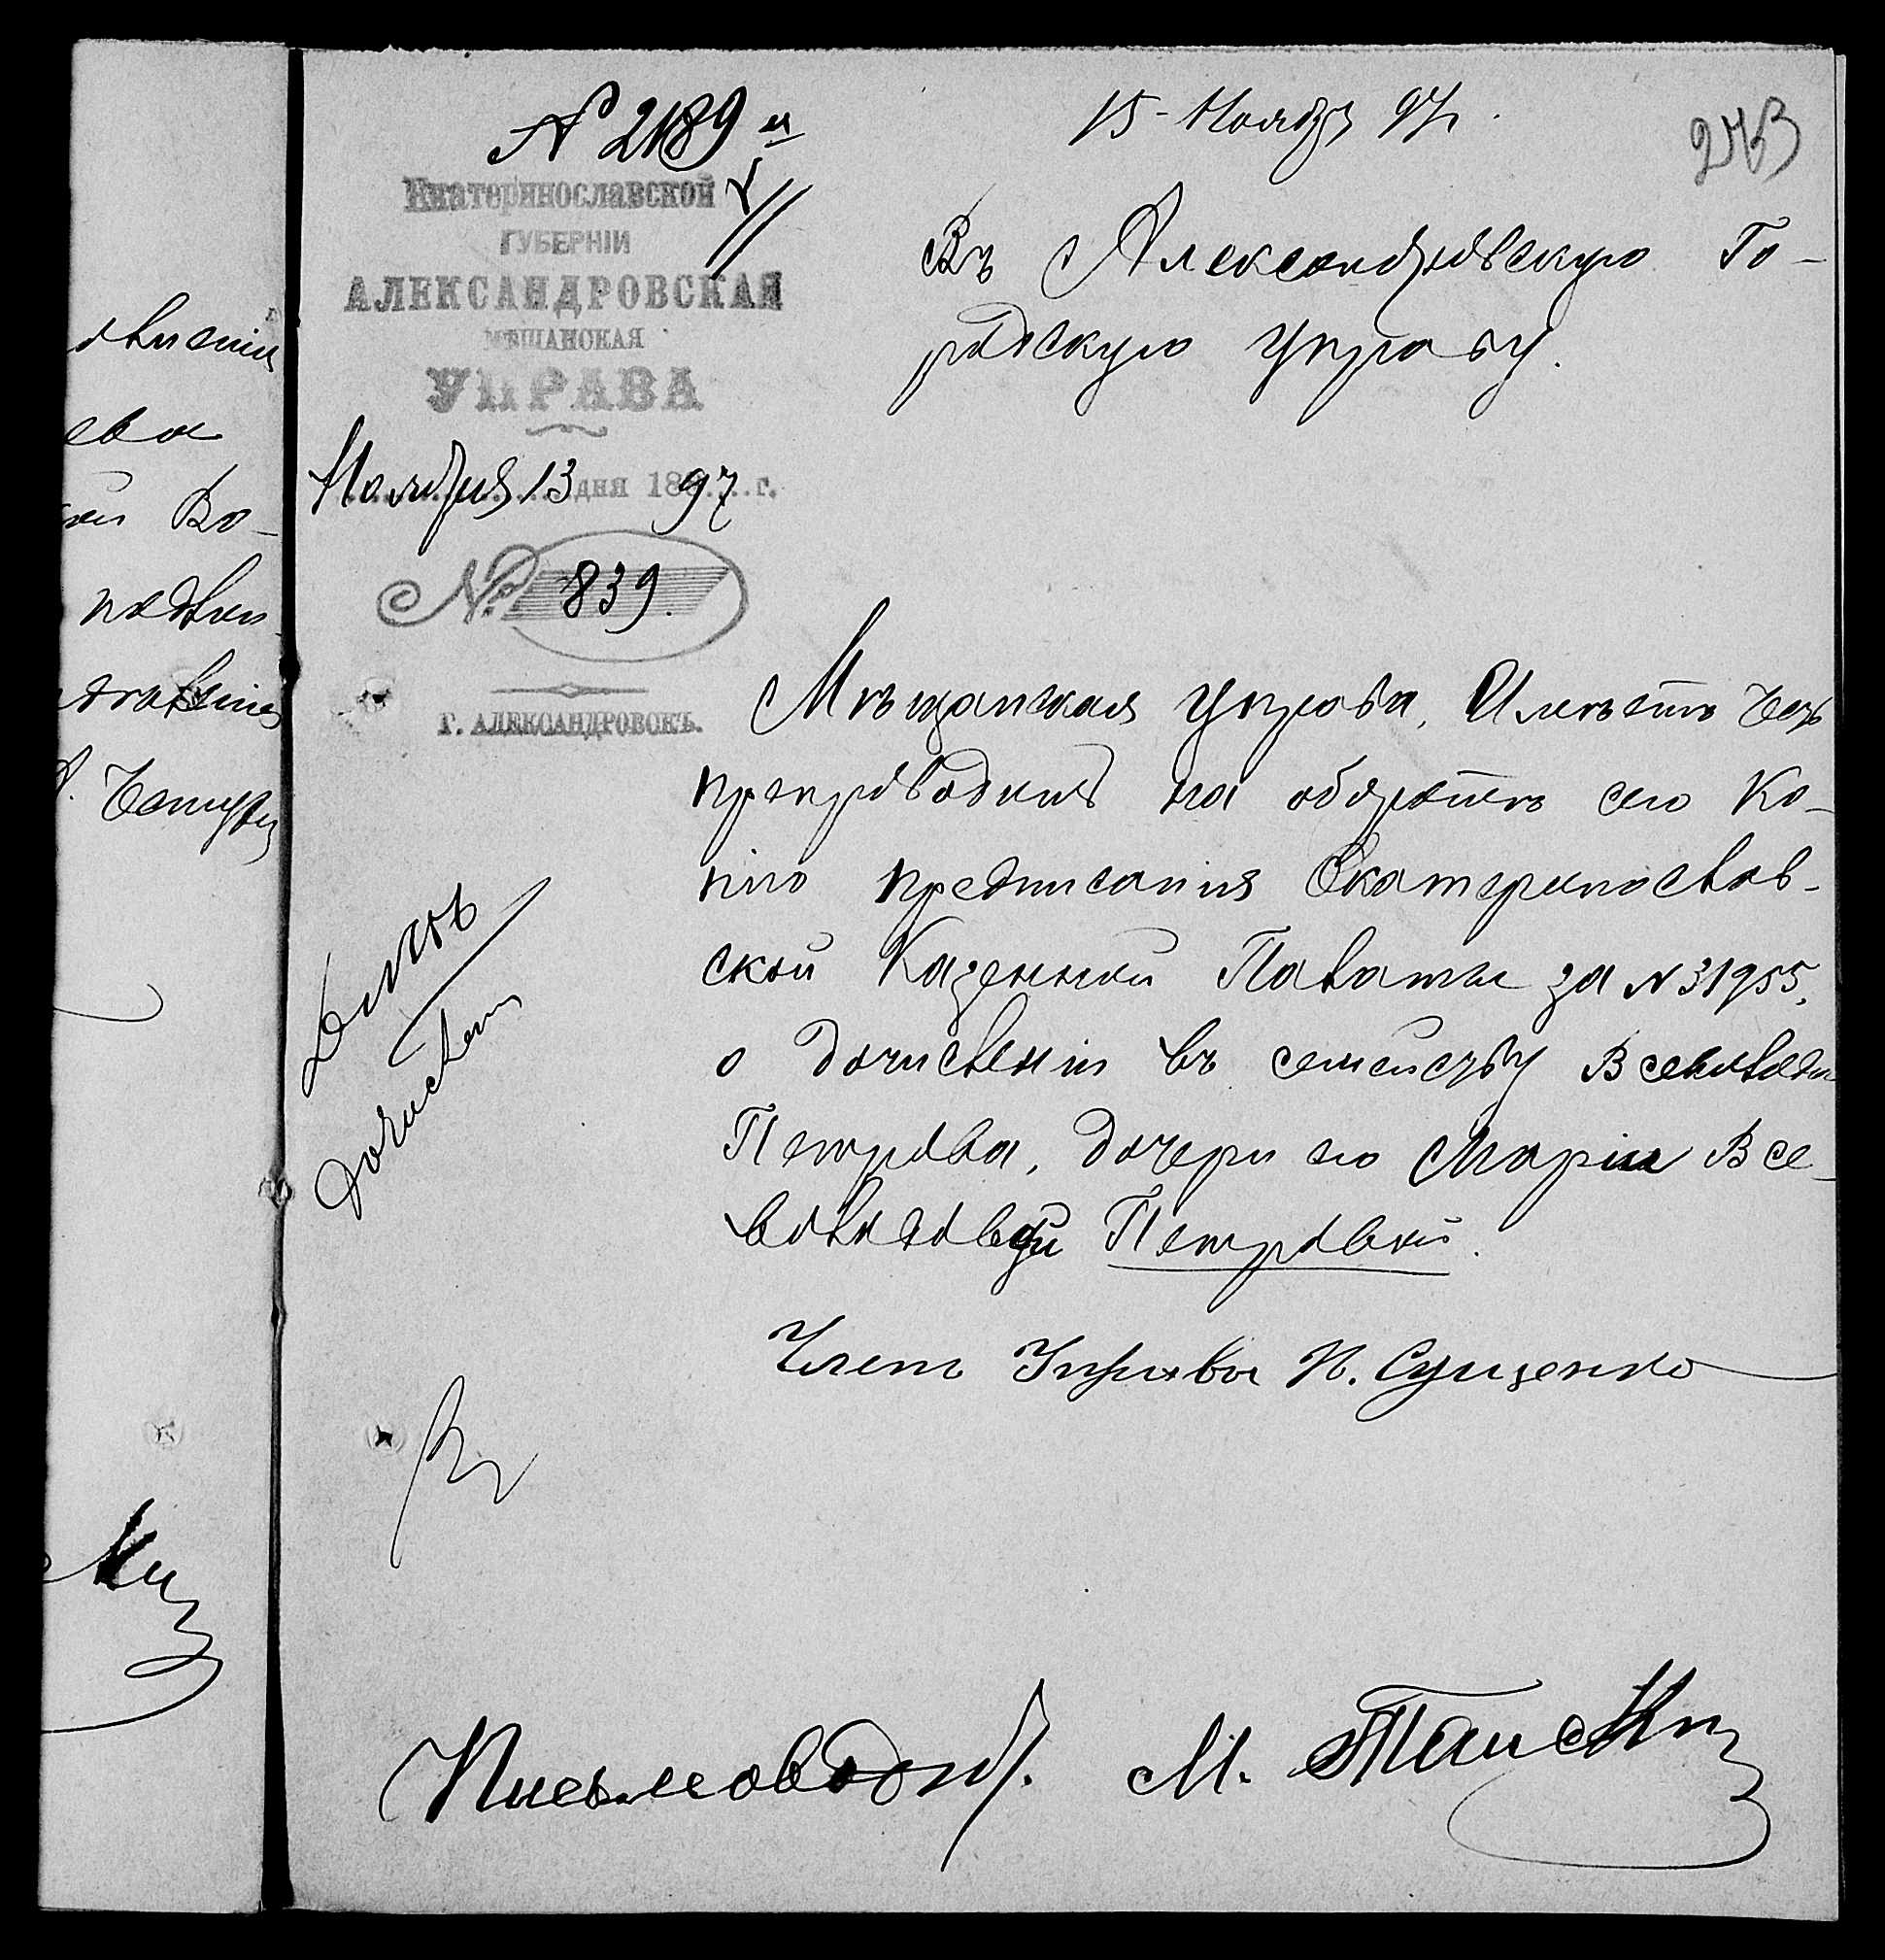 № 2189
15 Ноября 97 г.
273
Екатеринославской
ГУБЕРНІИ
АЛЕКСАНДРОВСКАЯ
МѢЩАНСКАЯ
УПРАВА
Ноября 13 дня 189 97 г.
№ 839.
Г. АЛЕКСАНДРОВСКЪ.
Въ Александровскую Го-
родскую Управу.
Мѣщанская Управа, Имѣетъ честь
препроводить на оборотѣ сего Ко-
пію предписанія Екатеринослав-
ской Казенной Палаты за № 31955,
о дочисленіи въ семейству Всеволода
Петрова, дочери его Маріи Все-
володовой Петровой.
Членъ Управы И. Сущенко
дочислен
Письмовод.
М.